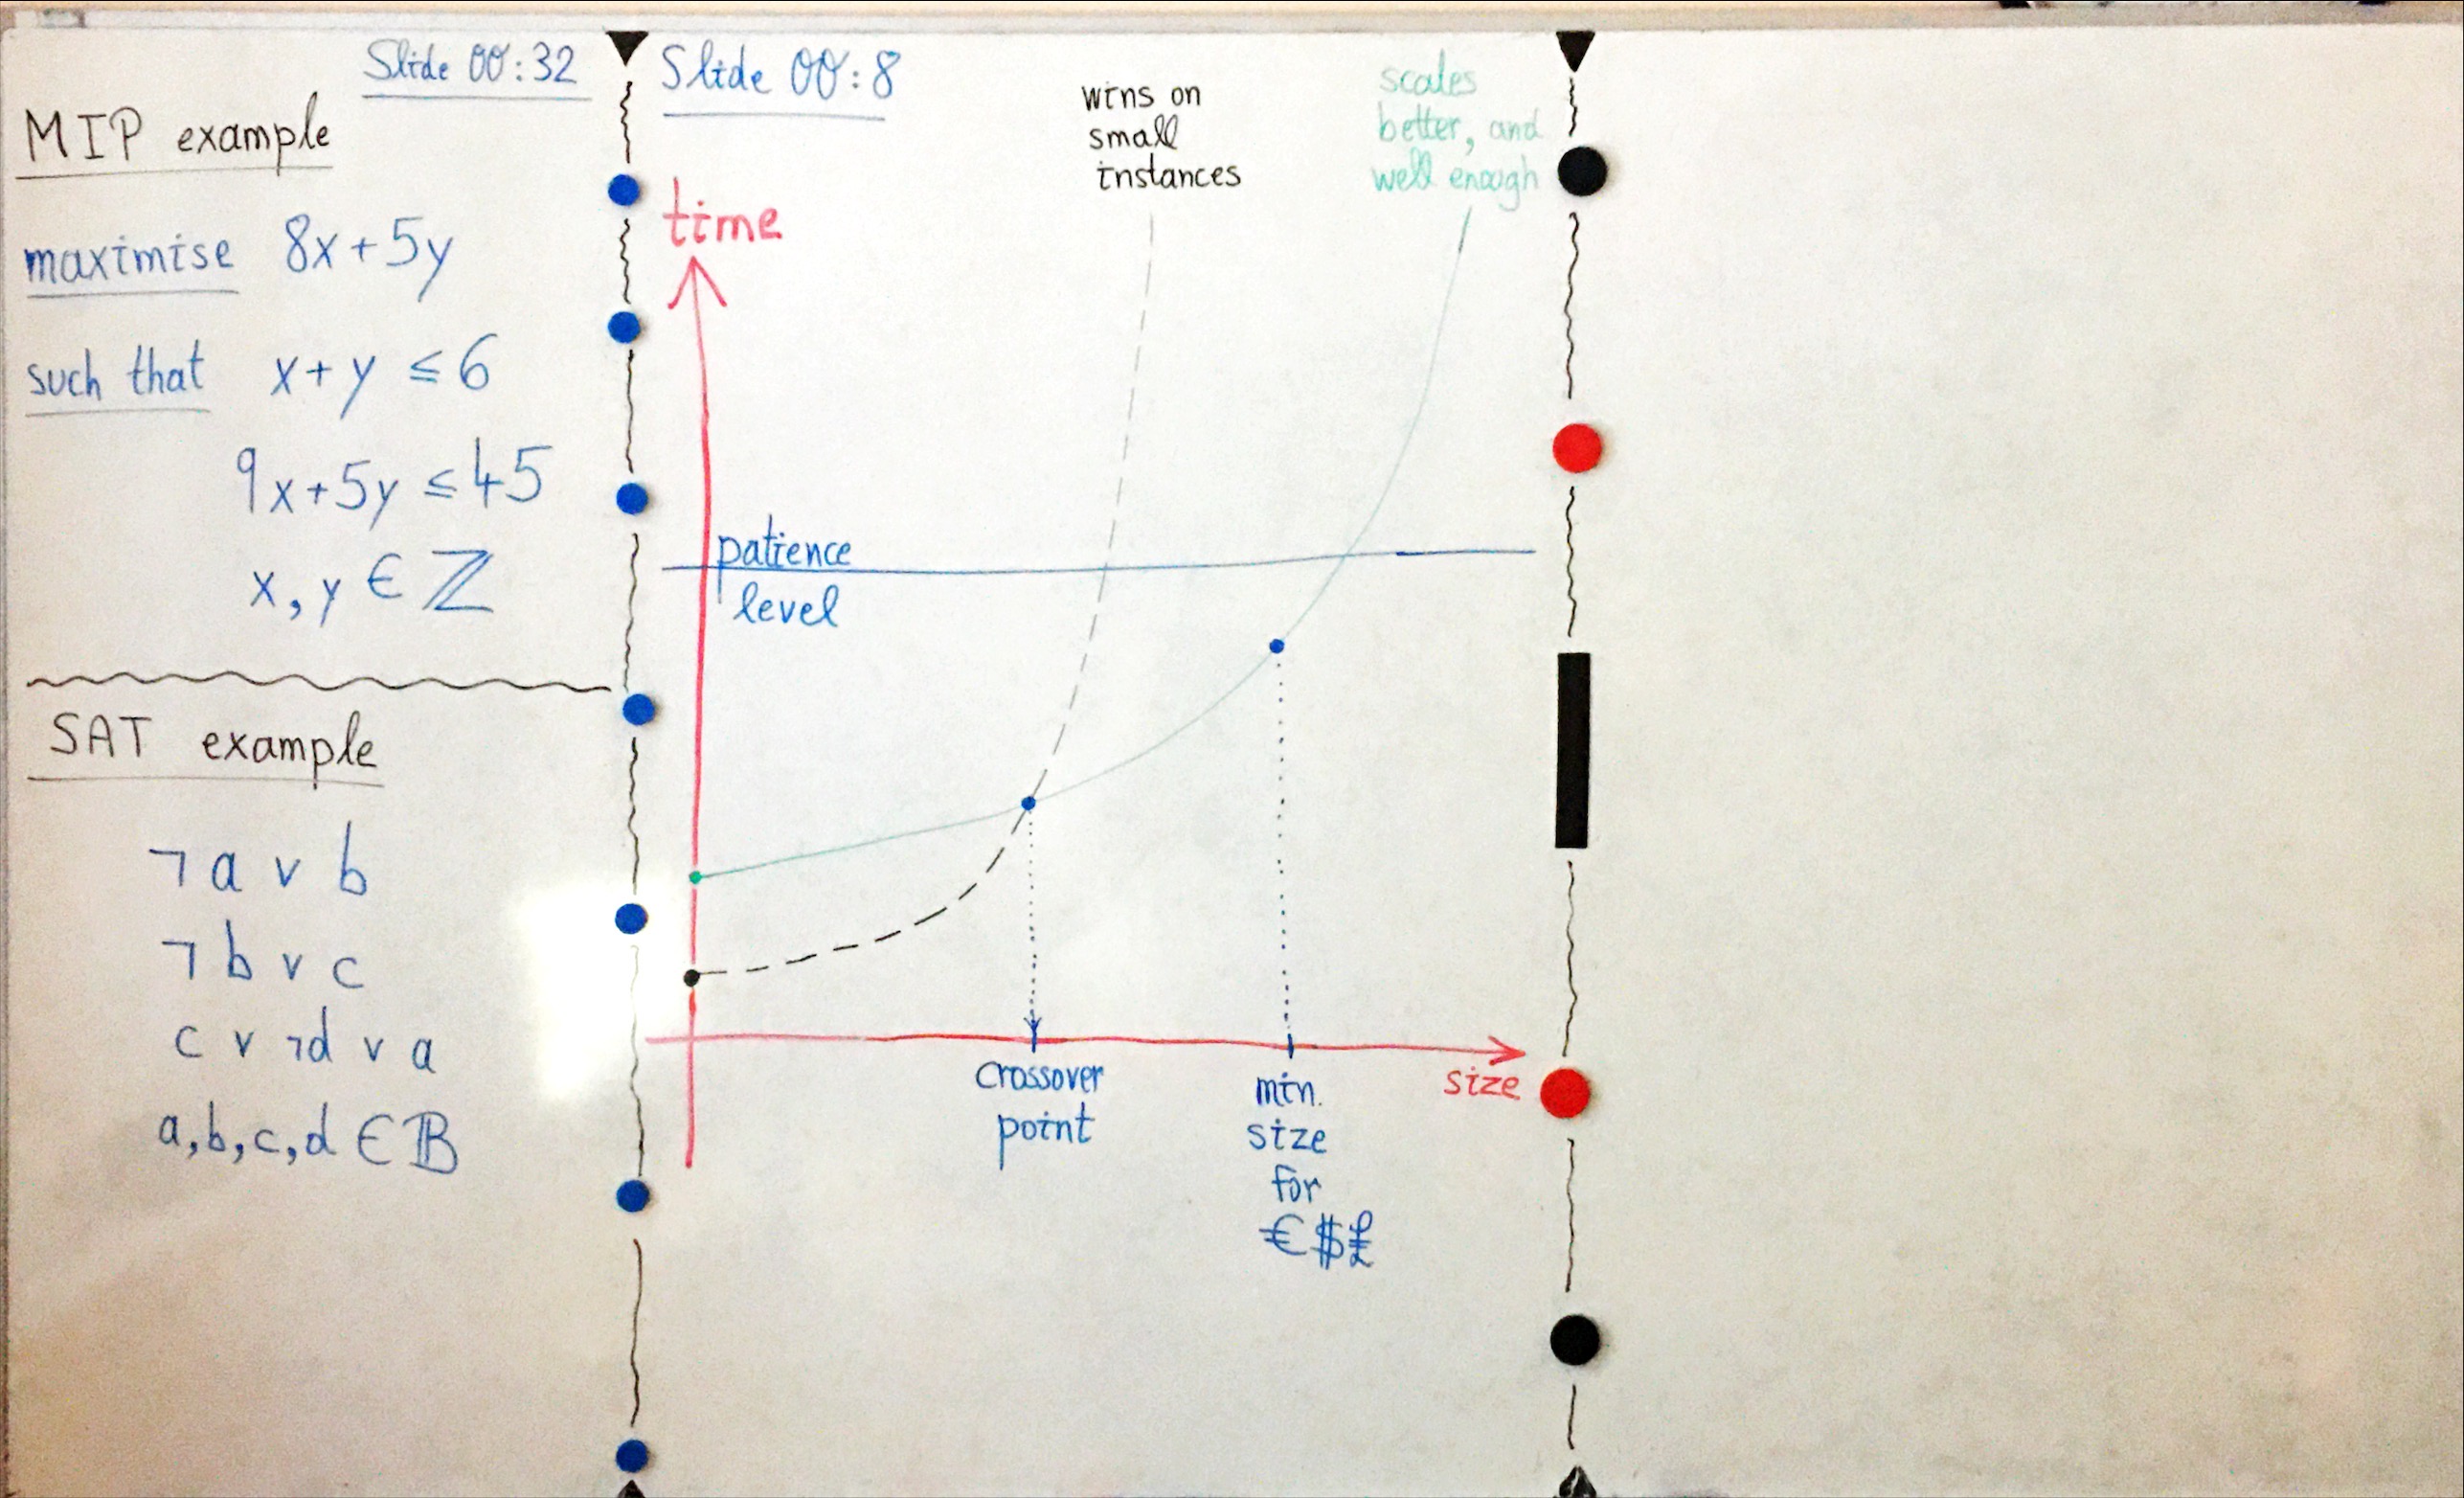 Slide 00:32
MIP example
maximise 8x+5y
such that x+y ≤6
9x+5y ≤45
x,y ∈ ℤ
SAT example
¬a ∨ b
¬b ∨ c
c ∨ ¬d ∨ a
a,b,c,d ∈ 𝔹
Slide 00:8
wins on
small
instances
scales
better, and
well enough
time
patience
level
size
crossover
point
min.
size
for
€$£